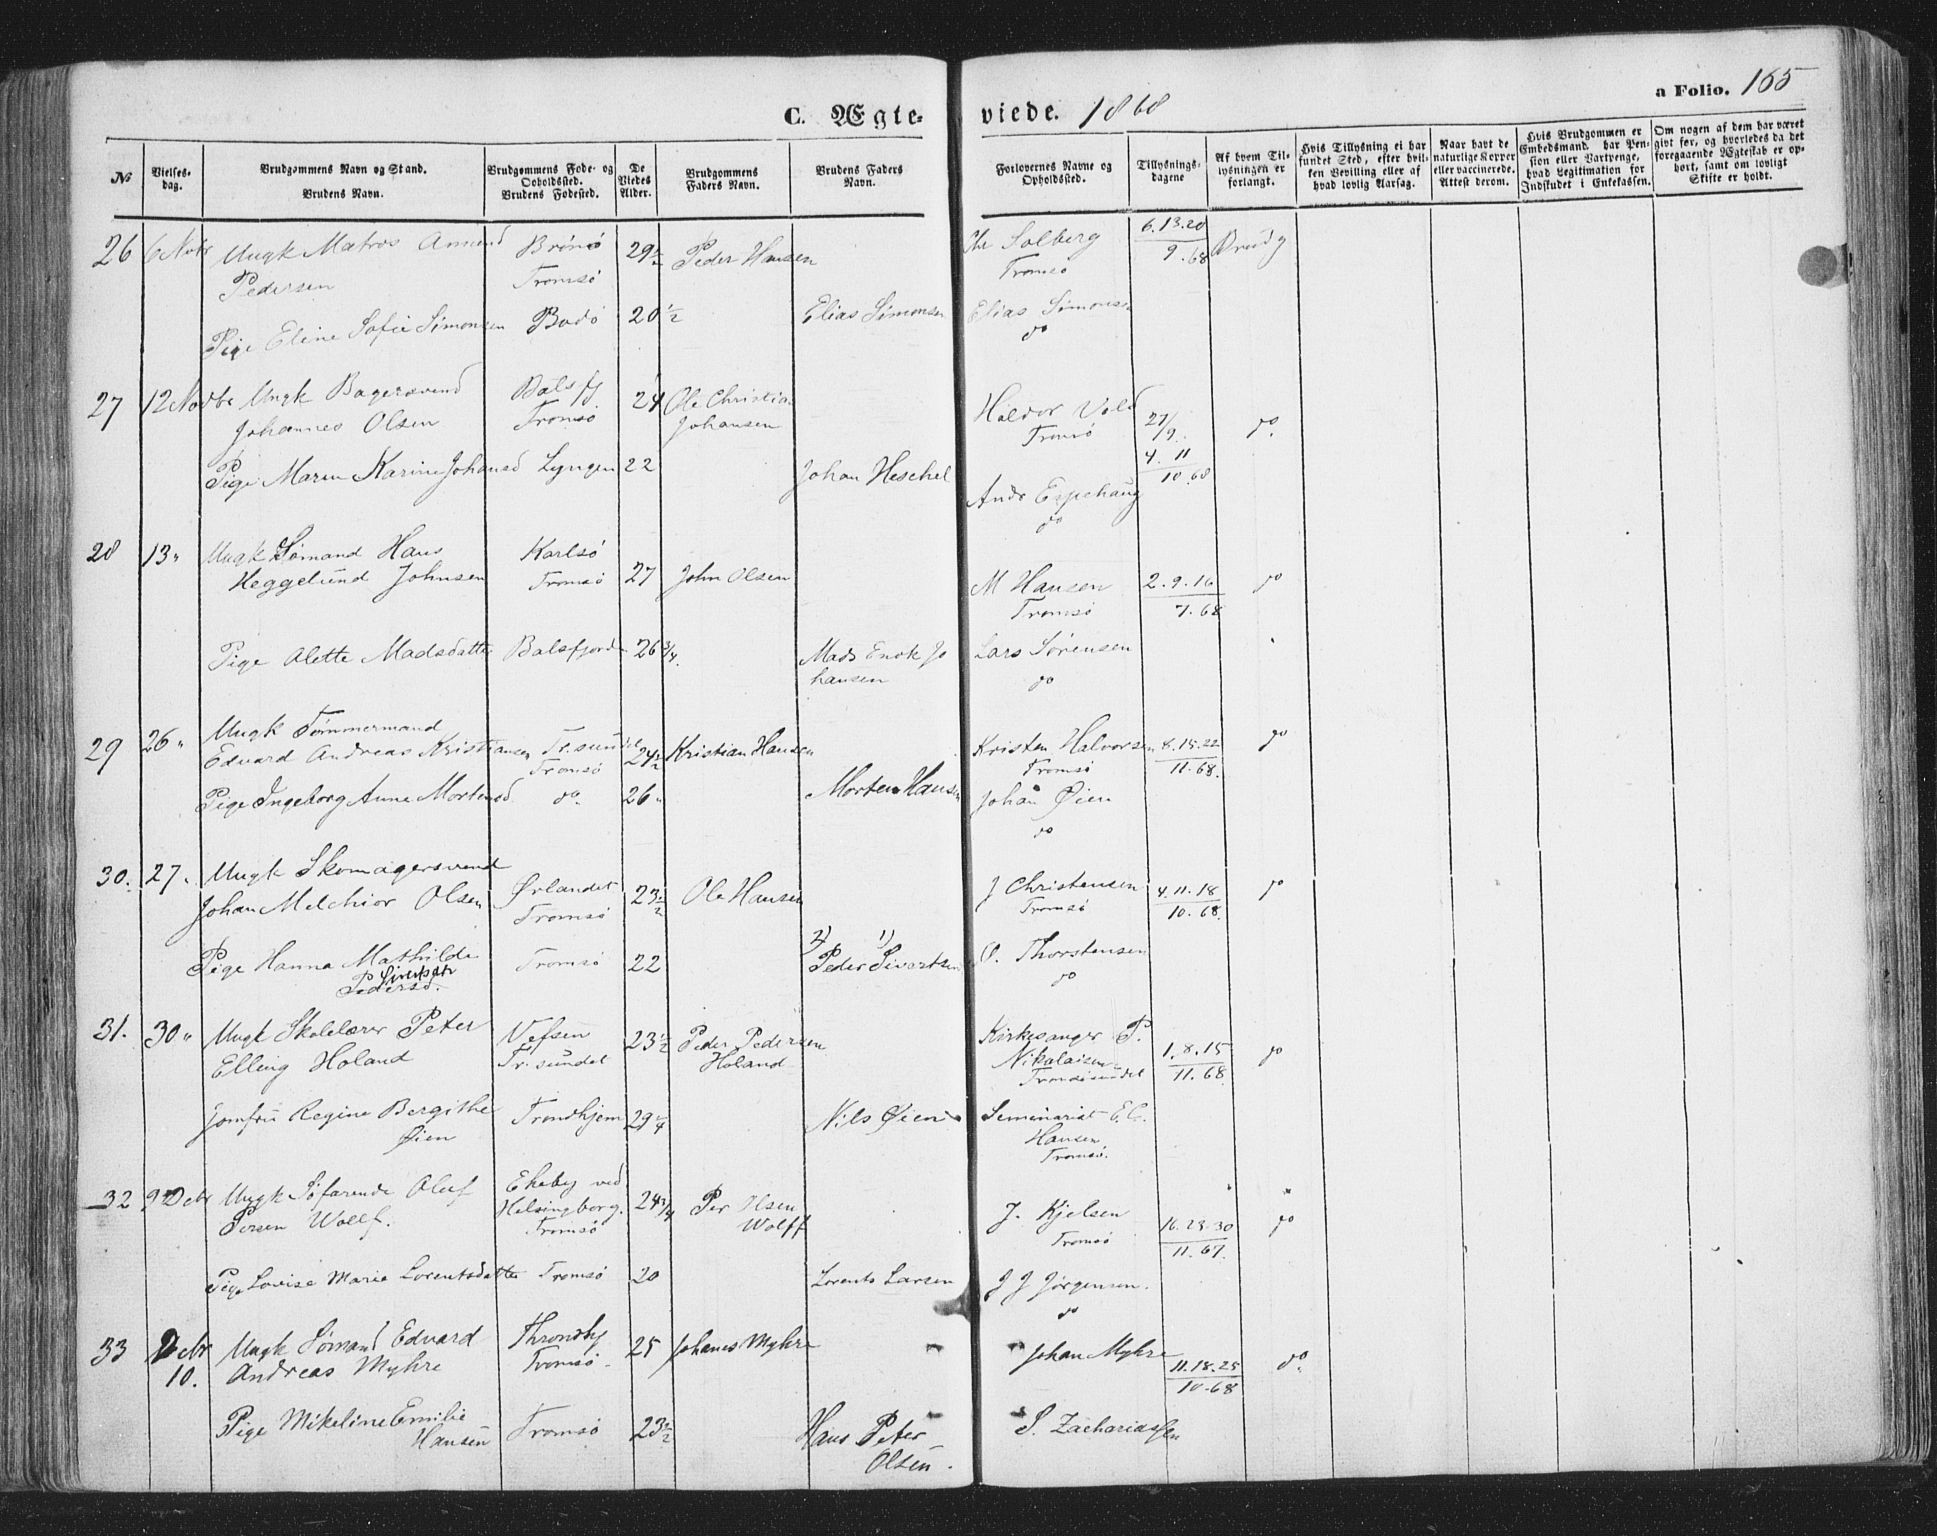 C. Ægteviede. 1868
a Folio. 165
№
Vielsesdag.
Brudgommens Navn og Stand.
Brudens Navn.
Brudgommens Føde- og Opholdssted.
Brudens Fødested.
De Viedes Alder.
Brudgommens Faders Navn.
Brudens Faders Navn.
Forlovernes Navne og Opholdssted.
Tillysningsdagene
Af hvem Tillysningen er forlangt.
Hvis Tillysning ei har fundet Sted, efter hvilken Bevilling eller af hvad lovlig Aarsag.
Naar havt de naturlige Kopper eller vaccinerede. Attest derom.
Hvis Brudgommen er Embedsmand, har Pension eller Vartpenge, hvad Legitimation for Indskudet i Enkekassen.
Om nogen af dem har været givt før, og hvorledes da det foregaaende Ægteskab er ophørt, samt om lovligt Skifte er holdt.
26 6 Novbr Ungk Matros Amund Brønø 29½ Peder Hansen Chr Solberg 6.13.20
Pedersen Tromsø Tromsø 9.68 Brudg
Pige Eline Sofie Simonsen Bodø 20½ Elias Simonsen Elias Simonsen
do
27 12 Novbr Ungk Bagersvend Balsfj 24 Ole Christian Halvor Vold 27/9.
Johannes Olsen Tromsø Johansen Tromsø do.
Pige Maren Karine Johansd Lyngen 22 Johan Heschel 4.11
10.68
Andr Espehaug
do
28 13 " Ungk Sømand Hans Karlsø
Heggelund Johnsen Tromsø 27 John Olsen M Hansen 2.9.16 do
Tromsø 7.68
Pige Alette Madsdatter Balsfjorden 26¾. Mads Enok Jo Lars Sørensen
hansen do
29 26 " Ungk Tømmermand
Edvard Andreas Kristiansen Tr.sundet 24½ Kristian Hansen Kristen Halvorsen 8.15.22 do
Tromsø Tromsø 11.68.
Pige Ingeborg Anne Mortensd do. 26 " Morten Hansen Johan Øien
do
30. 27. Ungk Skomagersvend
Johan Melchior Olsen Ørlandet 23½ Ole Hansen J Christensen 4.11.18 do
Tromsø Tromsø 10.68.
2) 1)
Pige Hanna Mathilde Tromsø 22 Peder Sivertsen O. Thorstensen
Sivertsen do
Pedersd.
31. 30 " Ungk Skolelærer Peter Vefsen 23½ Peder Pedersen Kirkesanger P.
Elling Holand Tr.sundet Holand Nikolaisen 1.8.15 do
Tromsøsundet 11.68
Jomfru Regine Bergithe Trondhjem 29¼ Nils Øien Seminarist E.C.
Øien Hansen
Tromsø.
32 9 Debr Ungk Søfarende Oluf Ekeby ved
Persen Wolff. Helsingborg. 24¾ Per Olsen J. Kjelsen 16.23.30 do
Tromsø Wolff Tromsø 11.67.
Pige Lovise Marie Lorentsdatter Tromsø 20 Lorents Larsen J J Jørgensen.
do
33 Debr Ungk Sømand Edvard Throndhj 25 Johanes Myhre Johan Myhre 11.18.25 do.
10. Andreas Myhre Tromsø. 10.68
Pige Mikeline Emilie Tromsø 23½ Hans Peter S. Zachariassen
Hansen Olsen.